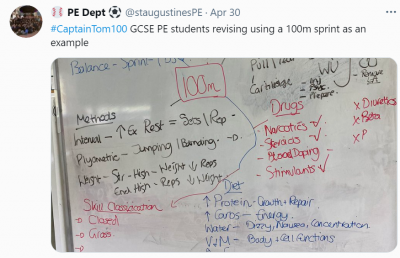 PE Dept ⚽ @staugustinesPE · Apr 30
#CaptainTom100 GCSE PE students revising using a 100m sprint as an
example
Balance - Sprint
Pull
Cartilage
Prepare
100m
Methods
Interval - ↑ Ex Rest = Sets | Rep
Plyometric - Jumping | Bounding
Weight - Str - High - Weight ↓ Reps
End High - Reps ↓ Weight
Skill Classification
Closed
Gross
Drugs
Narcotics - ✓
Steroids - ✓
Blood Doping -
Stimulants ✓
x Diuretics
x Beta
x P
Diet
↑ Protein - Growth + Repair
↑ Carbs - Energy
Water - Dizzy, Nausea, Concentration
V+M - Body + Cell Functions